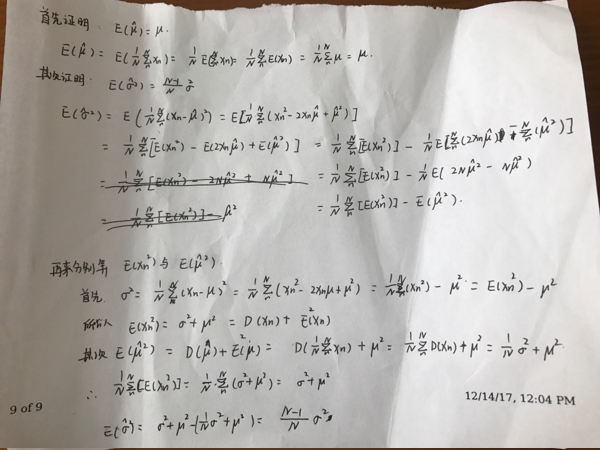 首先证明. E(μ̂) = μ.
E(μ̂) = E(1/N Σₙᴺ xn) = 1/N E(Σₙᴺ xn) = 1/N Σₙᴺ E(xn) = 1/N Σₙᴺ μ = μ.
其次证明. E(σ̂²) = (N-1)/N σ²
E(σ̂²) = E(1/N Σₙᴺ (xn-μ̂)²) = E[1/N Σₙᴺ (xn² - 2xnμ̂ + μ̂²)]
= 1/N Σₙᴺ [E(xn²) - E(2xnμ̂) + E(μ̂²)] = 1/N Σₙᴺ [E(xn²)] - 1/N E[Σₙᴺ (2xnμ̂) - Σₙᴺ (μ̂²)]
= 1/N Σₙᴺ [E(xn²) - 2Nμ̂² + Nμ̂²] = 1/N Σₙᴺ [E(xn²)] - 1/N E(2Nμ̂² - Nμ̂²)
= 1/N Σₙᴺ [E(xn²)] - μ̂² = 1/N Σₙᴺ [E(xn²)] - E(μ̂²).
再来分别算 E(xn²) 与 E(μ̂²).
首先. σ² = 1/N Σₙᴺ (xn-μ)² = 1/N Σₙᴺ (xn² - 2xnμ + μ²) = 1/N Σₙᴺ (xn²) - μ² = E(xn²) - μ²
所以 E(xn²) = σ² + μ² = D(xn) + E²(xn)
其次 E(μ̂²) = D(μ̂) + E²(μ̂) = D(1/N Σₙᴺ xn) + μ² = 1/N² Σₙᴺ D(xn) + μ² = 1/N σ² + μ².
∴ 1/N Σₙᴺ [E(xn²)] = 1/N · Σₙᴺ (σ² + μ²) = σ² + μ²
9 of 9
12/14/17, 12:04 PM
E(σ̂²) = σ² + μ² - (1/N σ² + μ²) = (N-1)/N σ²